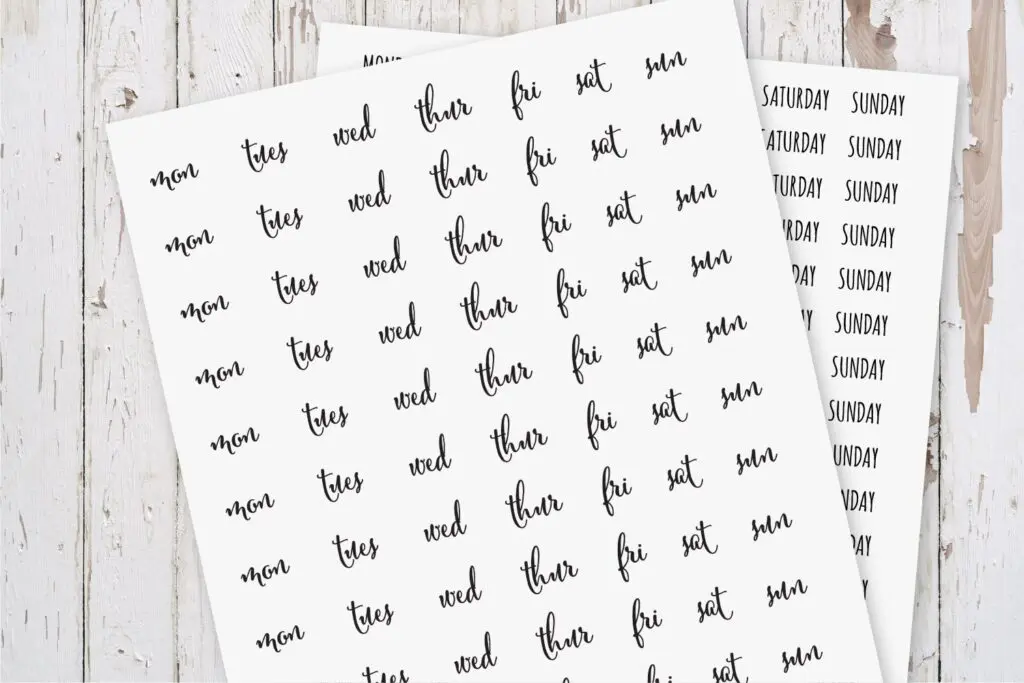 mon tues wed thur fri sat sun
mon tues wed thur fri sat sun
mon tues wed thur fri sat sun
mon tues wed thur fri sat sun
mon tues wed thur fri sat sun
mon tues wed thur fri sat sun
mon tues wed thur fri sat sun
mon tues wed thur fri sat sun
tues wed thur fri sat sun
fri sat sun
SATURDAY SUNDAY
SATURDAY SUNDAY
SUNDAY
SUNDAY
SUNDAY
SUNDAY
SUNDAY
SUNDAY